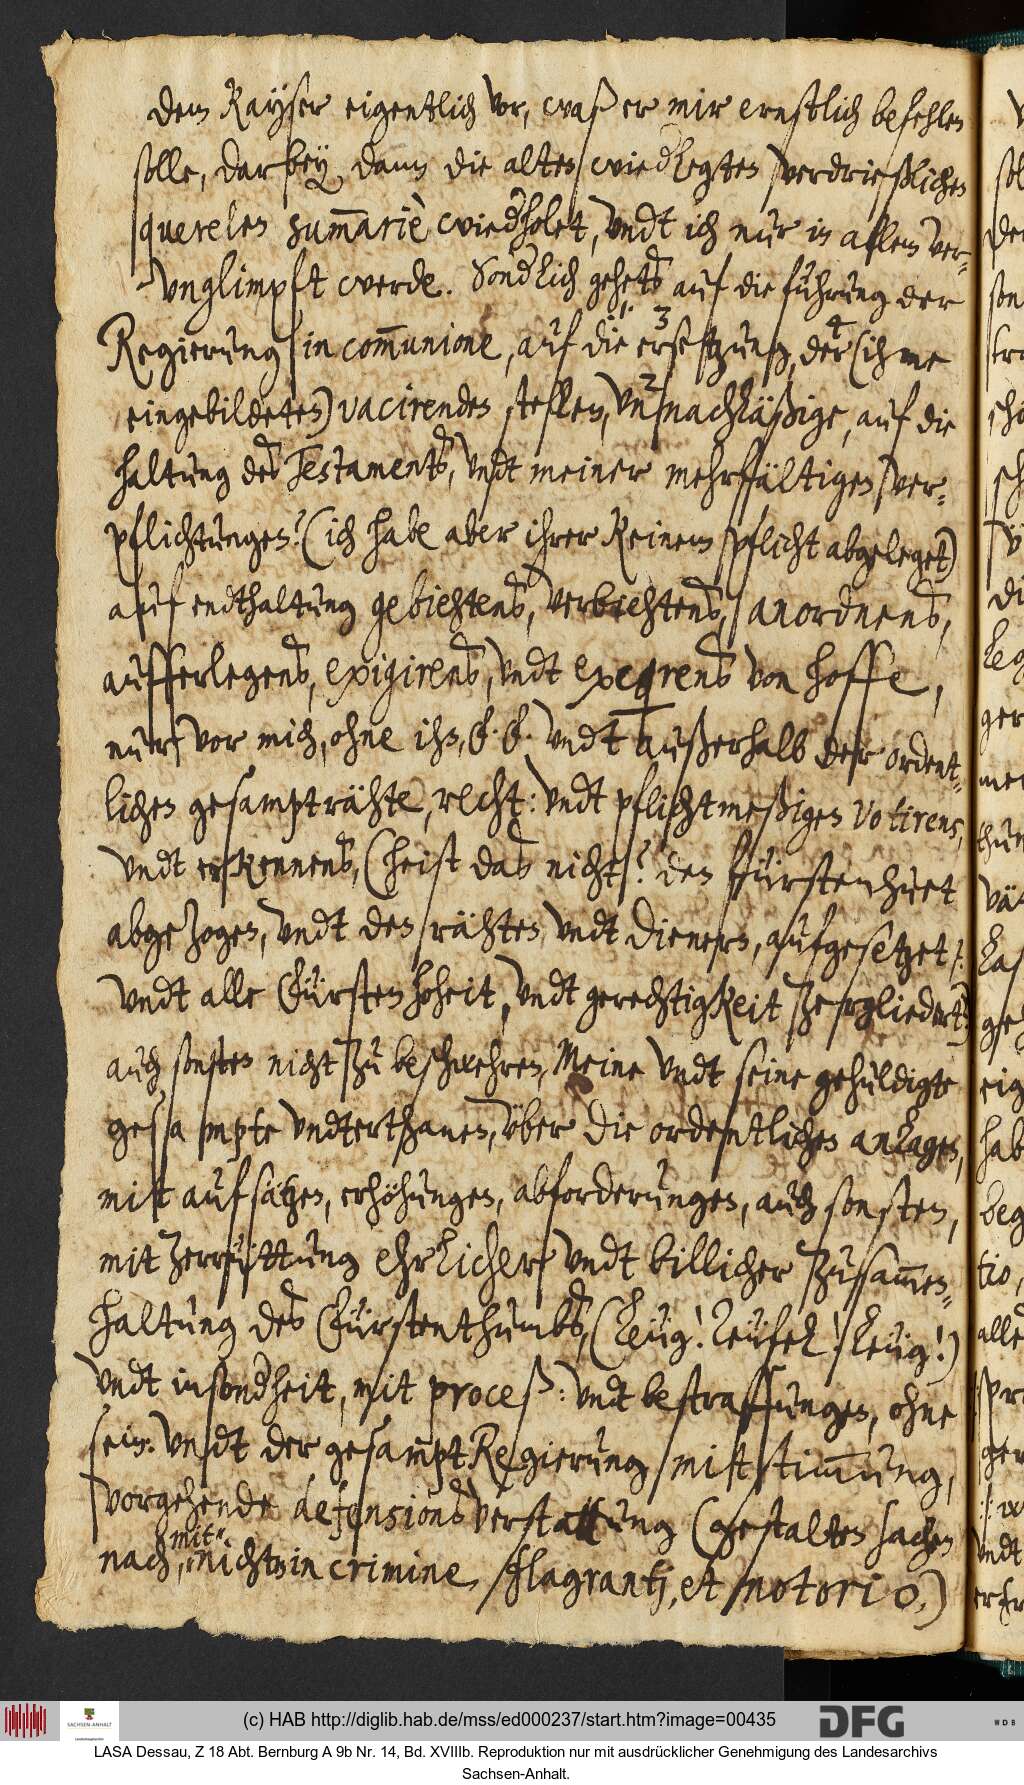 dem Kayser eigentlich vor, waß er mir ernstlich befehlen
solle, darbey dann die alten wiedlegten verdrießlichen
querelen summarié wiedholet, undt ich nur in allem ver-
unglimpft werde. Sondlich gehets auf die führung der
Regierung in communione, auf die 1. ersetzung, 3 der 4 (ihme
eingebildeten) vacirenden stellen, un 2 nachläßige, auf die
haltung des Testaments, undt meiner mehrffältigen ver-
pflichtungen? (ich habe aber ihrer Keinem pflicht abgeleget)
auf endthaltung gebiehtens, verbiehtens, anordnens,
aufferlegens, exigirens, undt exeqrens von hoffe,
nur vor mich, ohne ihn, G. G. undt außerhalb der ordent-
lichen gesampträhte, recht: undt pflichtmeßigen votirens,
undt erkennens, (heist das nicht? den fürstenhuet
abgezogen, undt den rähten undt dienern, aufgesetzet /:
undt alle Fürsten hoheit, undt gerechtigkeit zergliedert)
auch sonsten nicht zu beschwehren, Meine undt seine gehuldigte
gesampte undterthanen, über die ordentlichen anlagen,
mit aufsätzen, erhöhungen, abforderungen, auch sonsten,
mit zerrüttung ehrlicher undt billicher zusammen-
haltung des Fürstenthumbs, (Leüg! teüfel! leüg!)
undt insondheit, mit proceß: undt bestraffungen, ohne
sein: undt der gesampt Regierung mitstimmung,
vorgehende defensions verstattung (gestalten sachen
mit
nach, nichts in crimine flagranti, et notorio.)
(c) HAB http://diglib.hab.de/mss/ed000237/start.htm?image=00435
DFG
WDB
SACHSEN-ANHALT
LASA Dessau, Z 18 Abt. Bernburg A 9b Nr. 14, Bd. XVIIIb. Reproduktion nur mit ausdrücklicher Genehmigung des Landesarchivs
Sachsen-Anhalt.